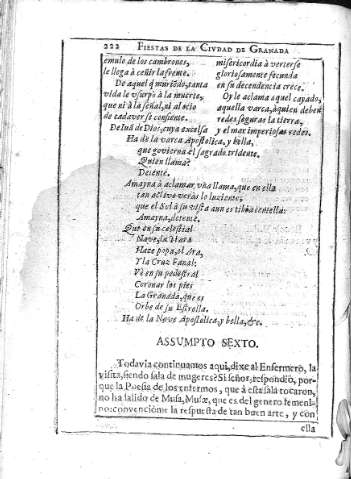 222 FIESTAS DE LA CIVDAD DE GRANADA
emule de los cambrones,
le llega à ceñir la frente.
De aquel q̃ muriẽdo, tanta
vida le vsurpò à la muerte,
que ni à la señal, ni al
de cadaver se consiente.
De Iuã de Dios, cuya excelsa
misericordia à verterse
gloriosamente fecunda
en su decendencia crece.
Oy le aclama aquel cayado,
aquella varca, à quien deben
redes segurar la tierra,
y el mar imperiosas redes.
Ha de la varca Apostolica, y bella,
que govierna el sagrado tridente.
Quien llama?
Detente.
Amayna à aclamar vna llama, que en ella
tan activo veràs lo luciente,
que el Sol à su vista aun es tibia centella:
Amayna, detente.
Que en su celestial
Nave, la tiara
Haze popa, el Ara,
Y la Cruz Fanal;
Vè en su pedestral
Coronar los pies
La Granada, que es
Orbe de su Estrella.
Ha de la Nave Apostolica, y bella, &c.
ASSUMPTO SEXTO.
Todavia continuamos aqui, dixe al Enfermero, la
visita, siendo sala de mugeres? Si señor, respondiò, por-
que la Poesia de los enfermos, que à esta sala tocaron,
no ha salido de Musa, Musæ, que es del genero femeni-
no: convenciòme la respuesta de tan buen arte, y con
ella